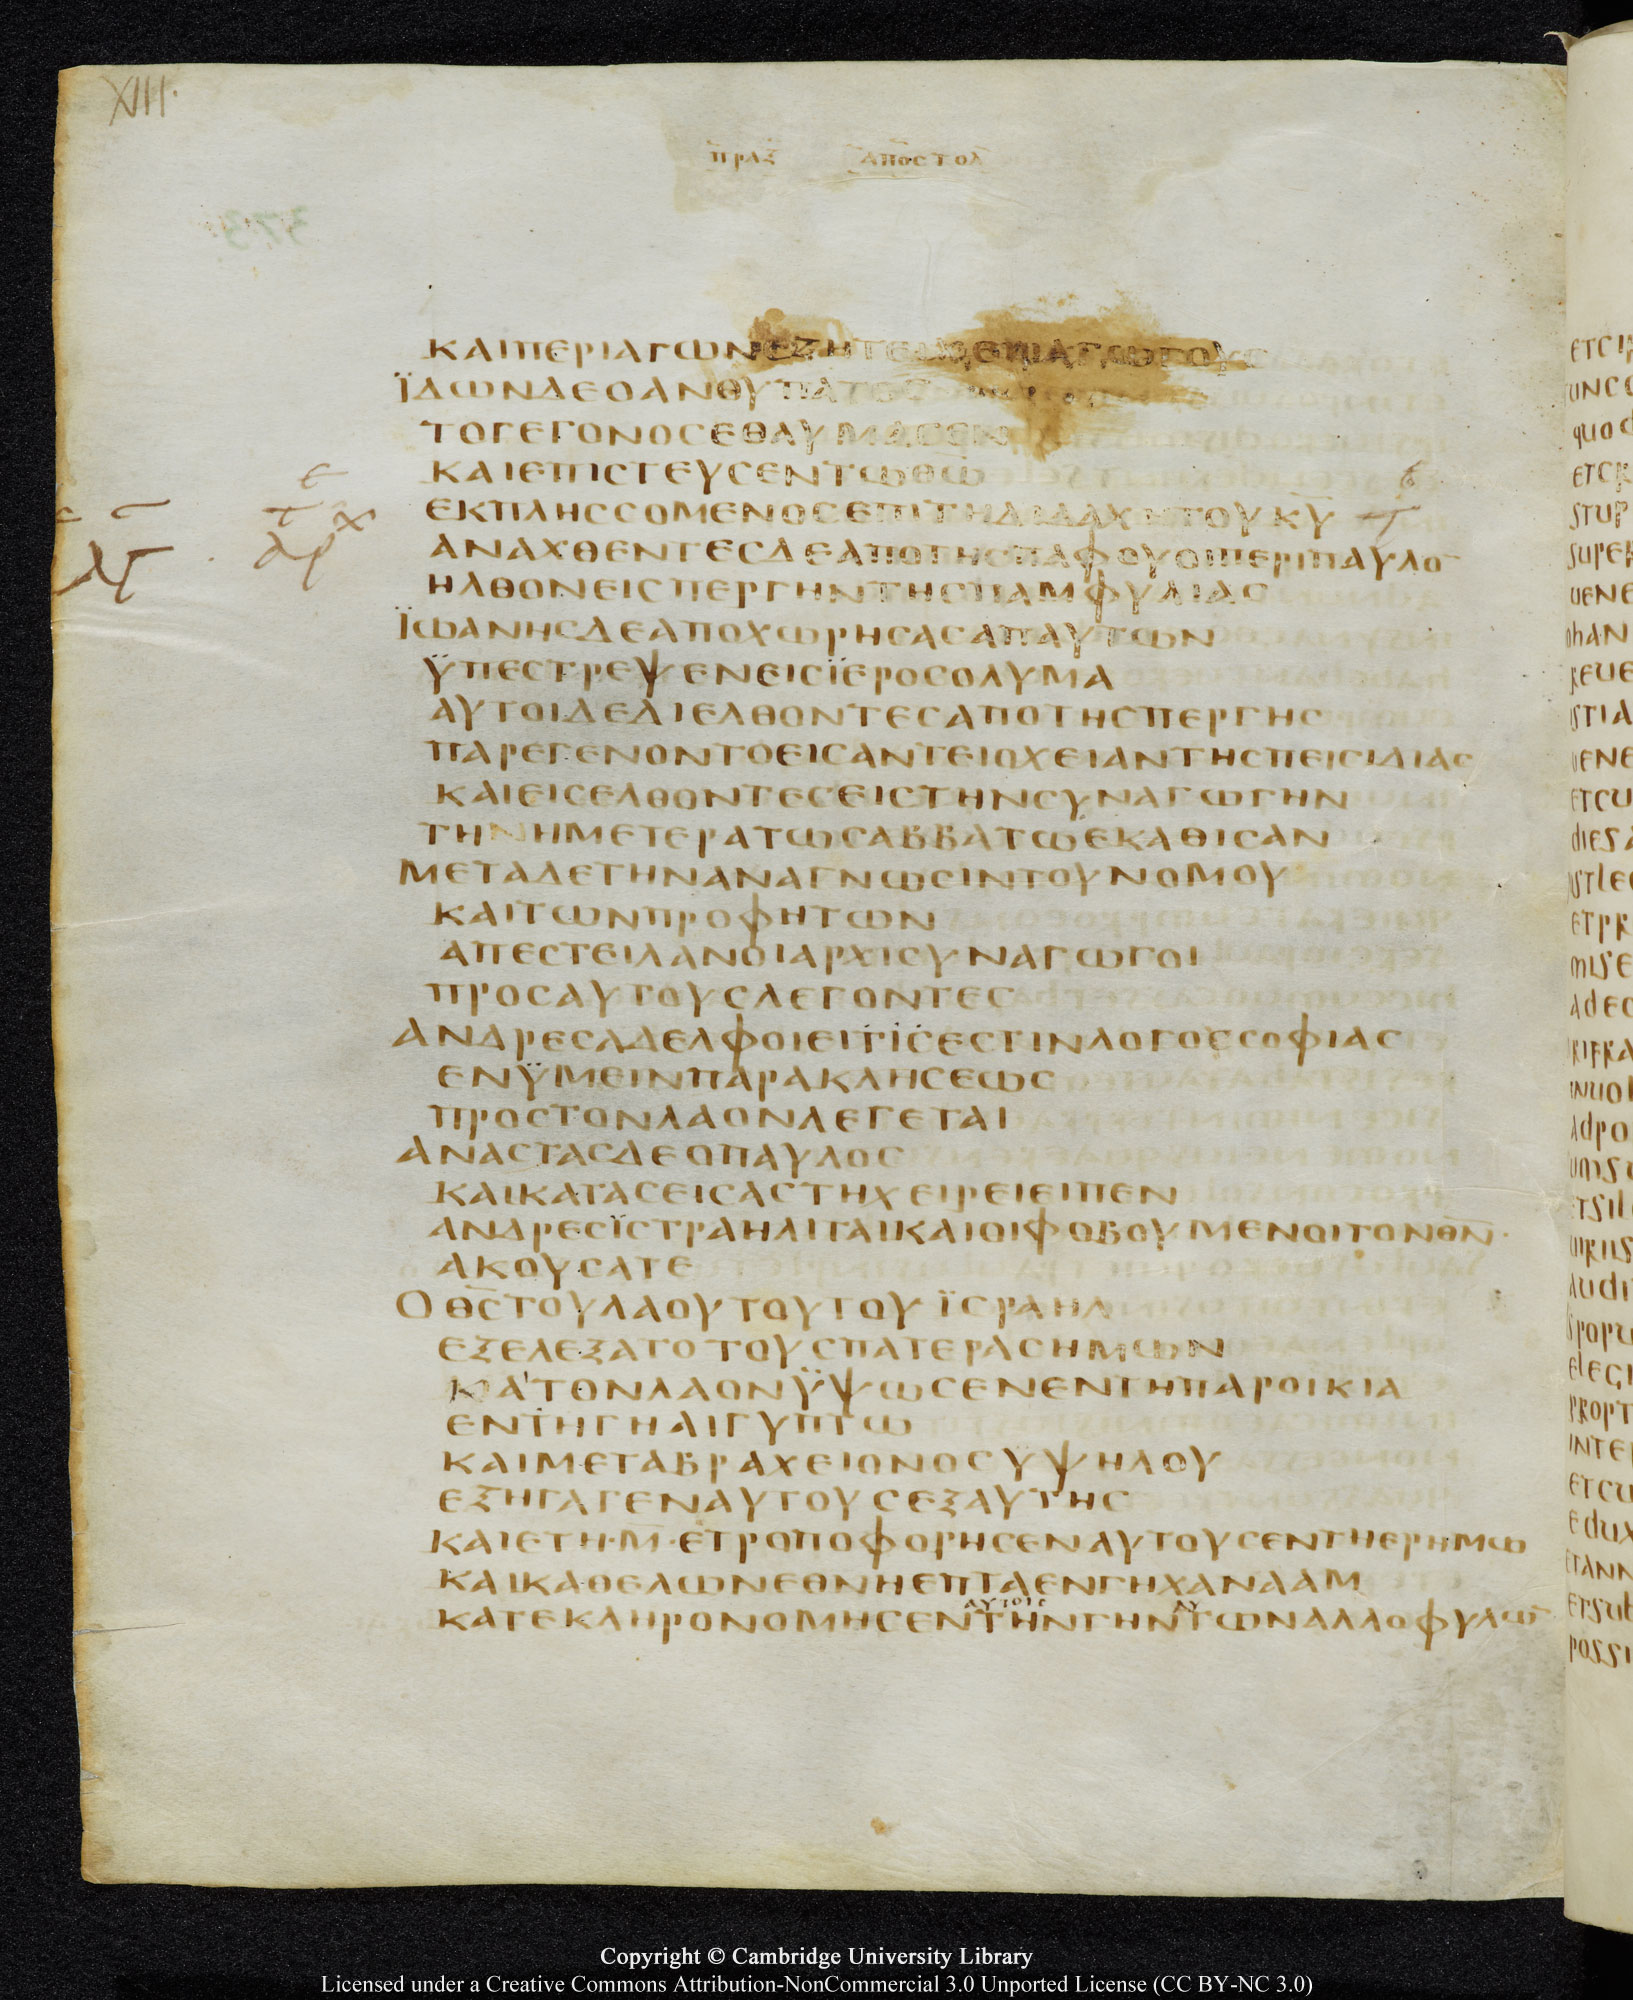 XIII·
ΠΡΑΞ ΑΠΟCΤΟΛ
373
ΚΑΙΠΕΡΙΑΓΩΝΕΖΗΤΕΙΧΕΙΡΑΓΩΓΟΥC
ΪΔΩΝΔΕΟΑΝΘΥΠΑΤΟC
ΤΟΓΕΓΟΝΟCΕΘΑΥΜΑCΕΝ
ΚΑΙΕΠΙCΤΕΥCΕΝΤΩΘΩ̅
ΕΚΠΛΗCCΟΜΕΝΟCΕΠΙΤΗΔΙΔΑΧΗΤΟΥΚ̅Υ̅
ΑΝΑΧΘΕΝΤΕCΔΕΑΠΟΤΗCΠΑΦΟΥΟΙΠΕΡΙΠΑΥΛΟ̅
ΗΛΘΟΝΕΙCΠΕΡΓΗΝΤΗCΠΑΜΦΥΛΙΑC
ΪΩΑΝΗCΔΕΑΠΟΧΩΡΗCΑCΑΠΑΥΤΩΝ
ΫΠΕCΤΡΕΨΕΝΕΙCΪΕΡΟCΟΛΥΜΑ
ΑΥΤΟΙΔΕΔΙΕΛΘΟΝΤΕCΑΠΟΤΗCΠΕΡΓΗC
ΠΑΡΕΓΕΝΟΝΤΟΕΙCΑΝΤΕΙΟΧΕΙΑΝΤΗCΠΕΙCΙΔΙΑC
ΚΑΙΕΙCΕΛΘΟΝΤΕCΕΙCΤΗΝCΥΝΑΓΩΓΗΝ
ΤΗΝΗΜΕΤΕΡΑΤΩCΑΒΒΑΤΩΕΚΑΘΙCΑΝ
ΜΕΤΑΔΕΤΗΝΑΝΑΓΝΩCΙΝΤΟΥΝΟΜΟΥ
ΚΑΙΤΩΝΠΡΟΦΗΤΩΝ
ΑΠΕCΤΕΙΛΑΝΟΙΑΡΧΙCΥΝΑΓΩΓΟΙ
ΠΡΟCΑΥΤΟΥCΛΕΓΟΝΤΕC
ΑΝΔΡΕCΑΔΕΛΦΟΙΕΙΤΙCΕCΤΙΝΛΟΓΟCCΟΦΙΑC
ΕΝΫΜΕΙΝΠΑΡΑΚΛΗCΕΩC
ΠΡΟCΤΟΝΛΑΟΝΛΕΓΕΤΑΙ
ΑΝΑCΤΑCΔΕΟΠΑΥΛΟC
ΚΑΙΚΑΤΑCΕΙCΑCΤΗΧΕΙΡΕΙΕΙΠΕΝ
ΑΝΔΡΕCΪCΤΡΑΗΛΙΤΑΙΚΑΙΟΙΦΟΒΟΥΜΕΝΟΙΤΟΝΘ̅Ν̅·
ΑΚΟΥCΑΤΕ
ΟΘ̅C̅ΤΟΥΛΑΟΥΤΟΥΤΟΥΪCΡΑΗΛ
ΕΞΕΛΕΞΑΤΟΤΟΥCΠΑΤΕΡΑCΗΜΩΝ
ΚΑ'ΤΟΝΛΑΟΝΫΨΩCΕΝΕΝΤΗΠΑΡΟΙΚΙΑ
ΕΝΤΗΓΗΑΙΓΥΠΤΩ
ΚΑΙΜΕΤΑΒΡΑΧΕΙΟΝΟCΥΨΗΛΟΥ
ΕΞΗΓΑΓΕΝΑΥΤΟΥCΕΞΑΥΤΗC
ΚΑΙΕΤΗ·Μ̅·ΕΤΡΟΠΟΦΟΡΗCΕΝΑΥΤΟΥCΕΝΤΗΕΡΗΜΩ
ΚΑΙΚΑΘΕΛΩΝΕΘΝΗΕΠΤΑΕΝΓΗΧΑΝΑΑΜ
ΑΥΤΟΙC
ΚΑΤΕΚΛΗΡΟΝΟΜΗCΕΝΤΗΝΓΗΝΤΩΝΑΛΛΟΦΥΛΩ̅
Copyright © Cambridge University Library
Licensed under a Creative Commons Attribution-NonCommercial 3.0 Unported License (CC BY-NC 3.0)